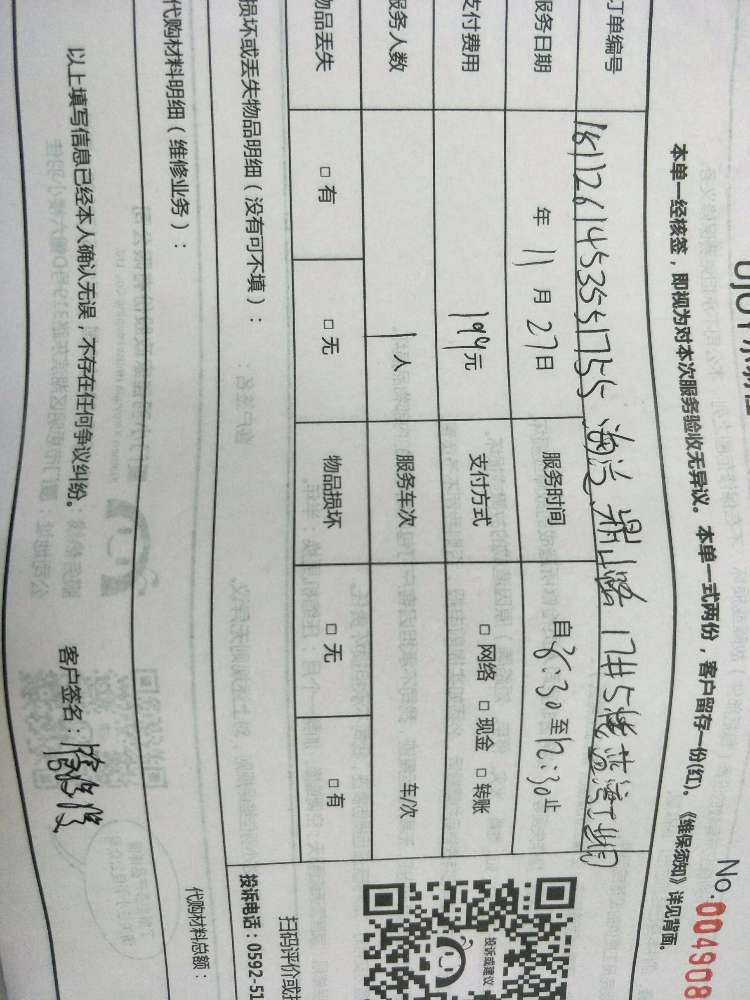 No.004908
本单一经核签，即视为对本次服务验收无异议。本单一式两份，客户留存一份(红)。《维保须知》详见背面。
订单编号 18112614535541755 海沧 路 17#5楼蓝湾
服务日期 年 11 月 27 日 服务时间 自 8:30 至 12:30 止
支付费用 199 元 支付方式 □ 网络 □ 现金 □ 转账
服务人数 1 人 服务车次 车/次
物品丢失 □ 有 □ 无 物品损坏 □ 无 □ 有
损坏或丢失物品明细（没有可不填）：
代购材料明细（维修业务）： 代购材料总额：
以上填写信息已经本人确认无误，不存在任何争议纠纷。 客户签名：
投诉或建议
扫码评价或投
投诉电话：0592-51